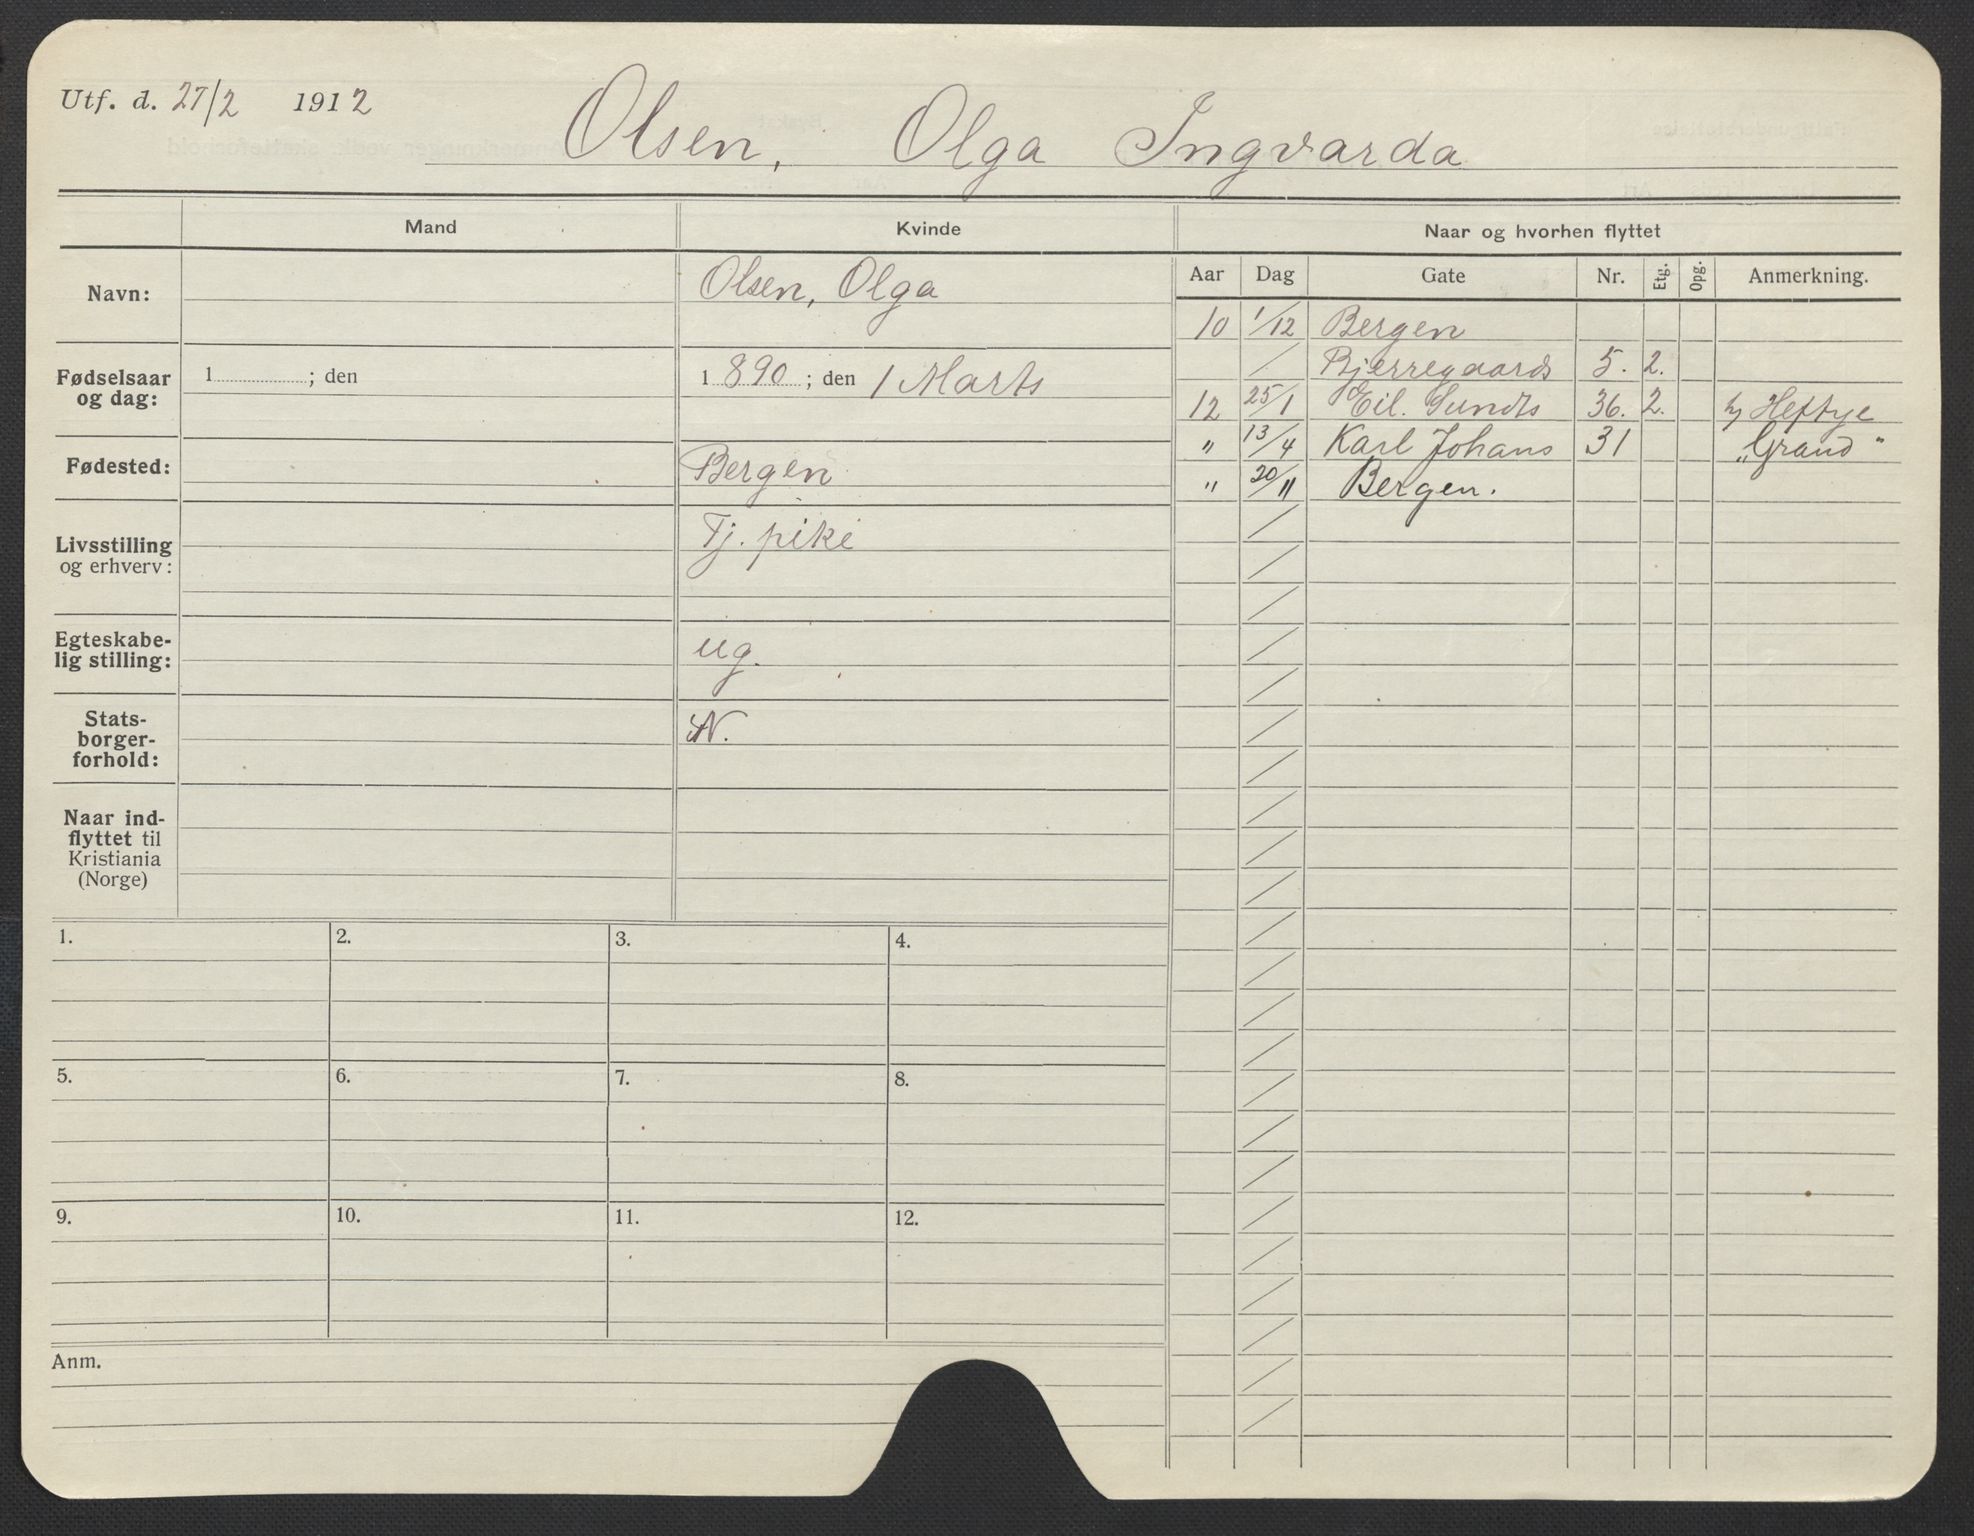 Utf. d. 27/2 1912
Olsen, Olga Ingvarda
Mand Kvinde Naar og hvorhen flyttet
Aar Dag Gate Nr. Etg. Opg. Anmerkning.
Navn: Olsen, Olga
Fødselsaar og dag: 1 ; den 1 890 ; den 1 Marts
Fødested: Bergen
Livsstilling og erhverv: Tj. pike
Egteskabe-
lig stilling: ug.
Stats-
borger-
forhold: N.
Naar ind-
flyttet til
Kristiania
(Norge)
10 1/12 Bergen
/ Bjerregaards 5. 2.
12 25/1 Eil. Sundts 36. 2. Heftye
" 13/4 Karl Johans 31 „Grand"
" 20/11 Bergen.
1. 2. 3. 4.
5. 6. 7. 8.
9. 10. 11. 12.
Anm.